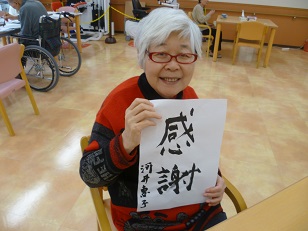 感謝
河井惠子